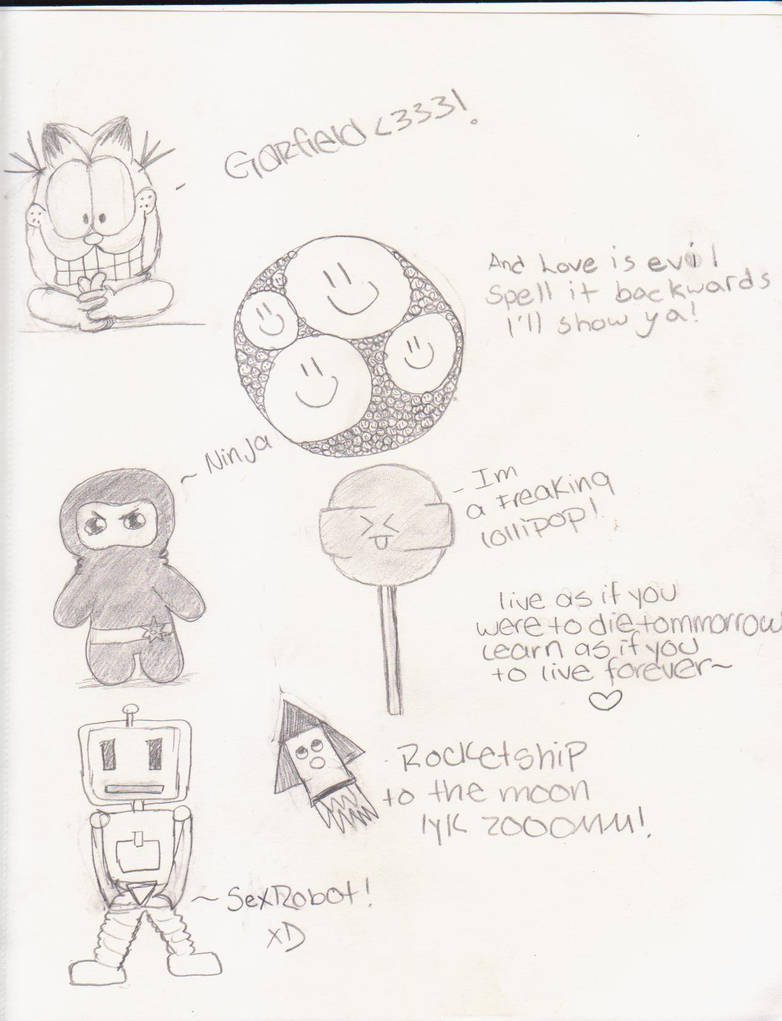 Garfield <333!
And Love is evil
Spell it backwards
I'll show ya!
~ Ninja
- Im
a Freaking
lollipop!
live as if you
were to die tommorrow
Learn as if you
to live forever~
- Rocketship
to the moon
lyk ZOOOMM!
~ SexRobot!
xD